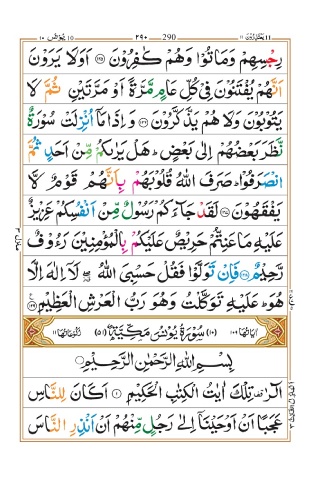 يعتذرون ١١ ٢٩٠ 290 يونس ١٠
رِجْسِهِمْ وَمَاتُوْا وَهُمْ كٰفِرُوْنَ ﴿۱۲۵﴾ اَوَلَا يَرَوْنَ
اَنَّهُمْ يُفْتَنُوْنَ فِىْ كُلِّ عَامٍ مَّرَّةً اَوْ مَرَّتَيْنِ ثُمَّ لَا
يَتُوْبُوْنَ وَلَا هُمْ يَذَّكَّرُوْنَ ﴿۱۲۶﴾ وَ اِذَا مَاۤ اُنْزِلَتْ سُوْرَةٌ
نَّظَرَ بَعْضُهُمْ اِلٰى بَعْضٍ ؕ هَلْ يَرٰٮكُمْ مِّنْ اَحَدٍ ثُمَّ
انْصَرَفُوْا ؕ صَرَفَ اللّٰهُ قُلُوْبَهُمْ بِاَنَّهُمْ قَوْمٌ لَّا
يَفْقَهُوْنَ ﴿۱۲۷﴾ لَقَدْ جَآءَكُمْ رَسُوْلٌ مِّنْ اَنْفُسِكُمْ عَزِيْزٌ
عَلَيْهِ مَا عَنِتُّمْ حَرِيْصٌ عَلَيْكُمْ بِالْمُؤْمِنِيْنَ رَءُوْفٌ
رَّحِيْمٌ ﴿۱۲۸﴾ فَاِنْ تَوَلَّوْا فَقُلْ حَسْبِىَ اللّٰهُ ۖ لَاۤ اِلٰهَ اِلَّا
هُوَ ؕ عَلَيْهِ تَوَكَّلْتُ وَهُوَ رَبُّ الْعَرْشِ الْعَظِيْمِ ﴿۱۲۹﴾
اٰيَاتُهَا ١٠٩ (١٠) سُوْرَةُ يُوْنُسَ مَكِّيَّةٌ (٥١) رُكُوْعَاتُهَا ١١
بِسْمِ اللّٰهِ الرَّحْمٰنِ الرَّحِيْمِ
الٓرٰ تِلْكَ اٰيٰتُ الْكِتٰبِ الْحَكِيْمِ ﴿۱﴾ اَكَانَ لِلنَّاسِ
عَجَبًا اَنْ اَوْحَيْنَاۤ اِلٰى رَجُلٍ مِّنْهُمْ اَنْ اَنْذِرِ النَّاسَ